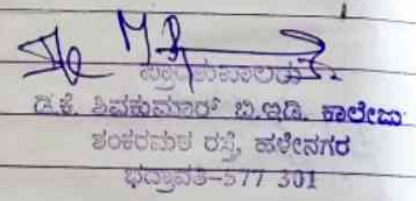 ಪ್ರಾಂಶುಪಾಲರು
ಡಿ.ಕೆ. ಶಿವಕುಮಾರ್ ಬಿ.ಇಡಿ. ಕಾಲೇಜು
ಶಂಕರಮಠ ರಸ್ತೆ, ಹಳೇನಗರ
ಭದ್ರಾವತಿ-577 301